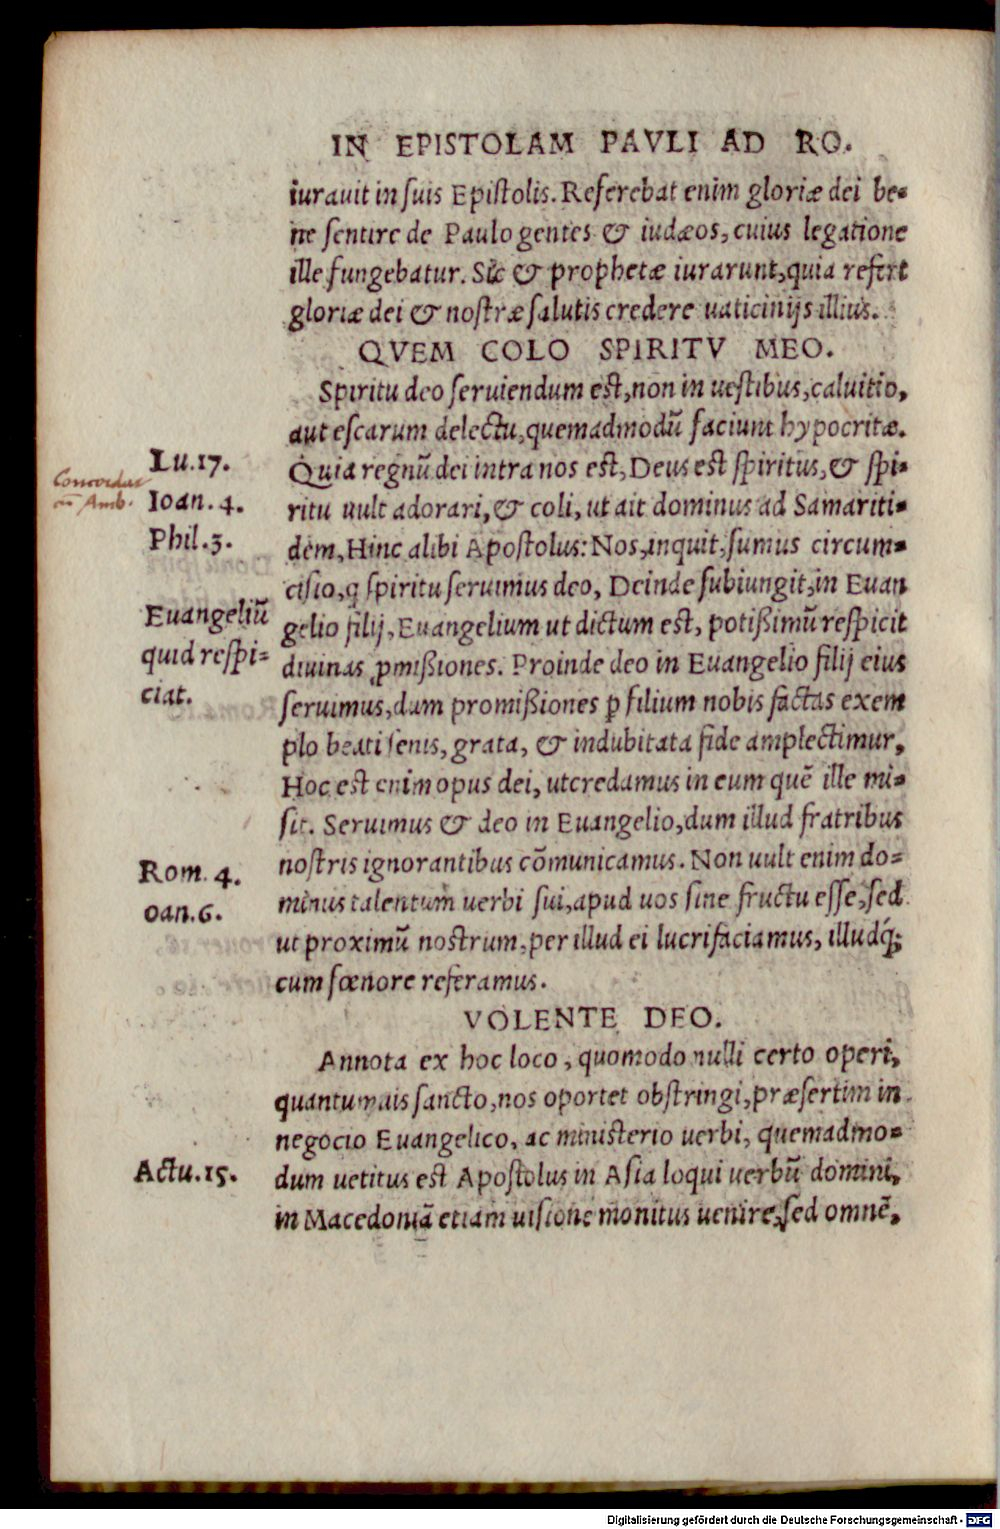 IN EPISTOLAM PAVLI AD RO.
iurauit in suis Epistolis. Referebat enim gloriæ dei be-
ne sentire de Paulo gentes & iudæos, cuius legatione
ille fungebatur. Sic & prophetæ iurarunt, quia refert
gloriæ dei & nostræ salutis credere uaticinijs illius.
QVEM COLO SPIRITV MEO.
Spiritu deo seruiendum est, non in uestibus, caluitio,
aut escarum delectu, quemadmodū faciunt hypocritæ.
Lu.17.
Quia regnū dei intra nos est, Deus est spiritus, & spi-
Concordat
cū Amb.
Ioan. 4.
ritu uult adorari, & coli, ut ait dominus ad Samariti-
Phil.3.
dem, Hinc alibi Apostolus: Nos, inquit, sumus circum-
cisio, q spiritu seruimus deo, Deinde subiungit, in Euan
Euangeliū
gelio filij, Euangelium ut dictum est, potißimū respicit
quid respi-
diuinas ꝓmißiones. Proinde deo in Euangelio filij eius
ciat.
seruimus, dum promißiones ꝑ filium nobis factas exem
plo beati senis, grata, & indubitata fide amplectimur,
Hoc est enim opus dei, ut credamus in eum quē ille mi-
sit. Seruimus & deo in Euangelio, dum illud fratribus
Rom. 4.
nostris ignorantibus cōmunicamus. Non uult enim do-
oan.6.
minus talentum uerbi sui, apud uos sine fructu esse, sed
ut proximū nostrum, per illud ei lucrifaciamus, illudq́;
cum fœnore referamus.
VOLENTE DEO.
Annota ex hoc loco, quomodo nulli certo operi,
quantumuis sancto, nos oportet obstringi, præsertim in
negocio Euangelico, ac ministerio uerbi, quemadmo-
Actu.15.
dum uetitus est Apostolus in Asia loqui uerbū domini,
in Macedoniā etiam uisione monitus uenire, sed omnē,
Digitalisierung gefördert durch die Deutsche Forschungsgemeinschaft - DFG